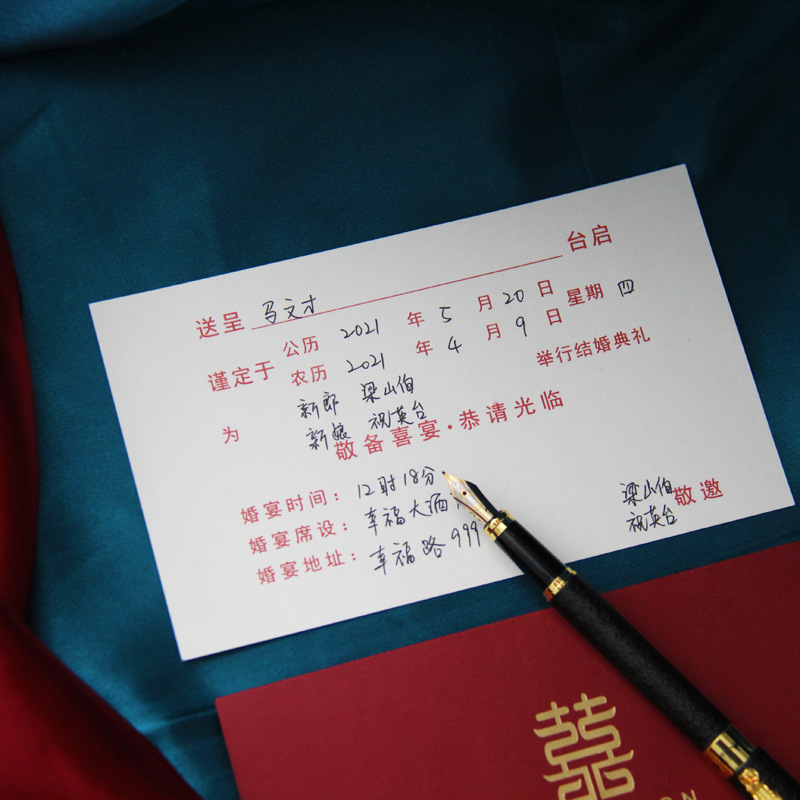 送呈 马文才 台启
公历 2021 年 5 月 20 日 星期 四
谨定于
农历 2021 年 4 月 9 日 举行结婚典礼
新郎 梁山伯
为
新娘 祝英台
敬备喜宴·恭请光临
婚宴时间：12时18分
婚宴席设：幸福大酒
婚宴地址：幸福路999
梁山伯
祝英台 敬邀
囍